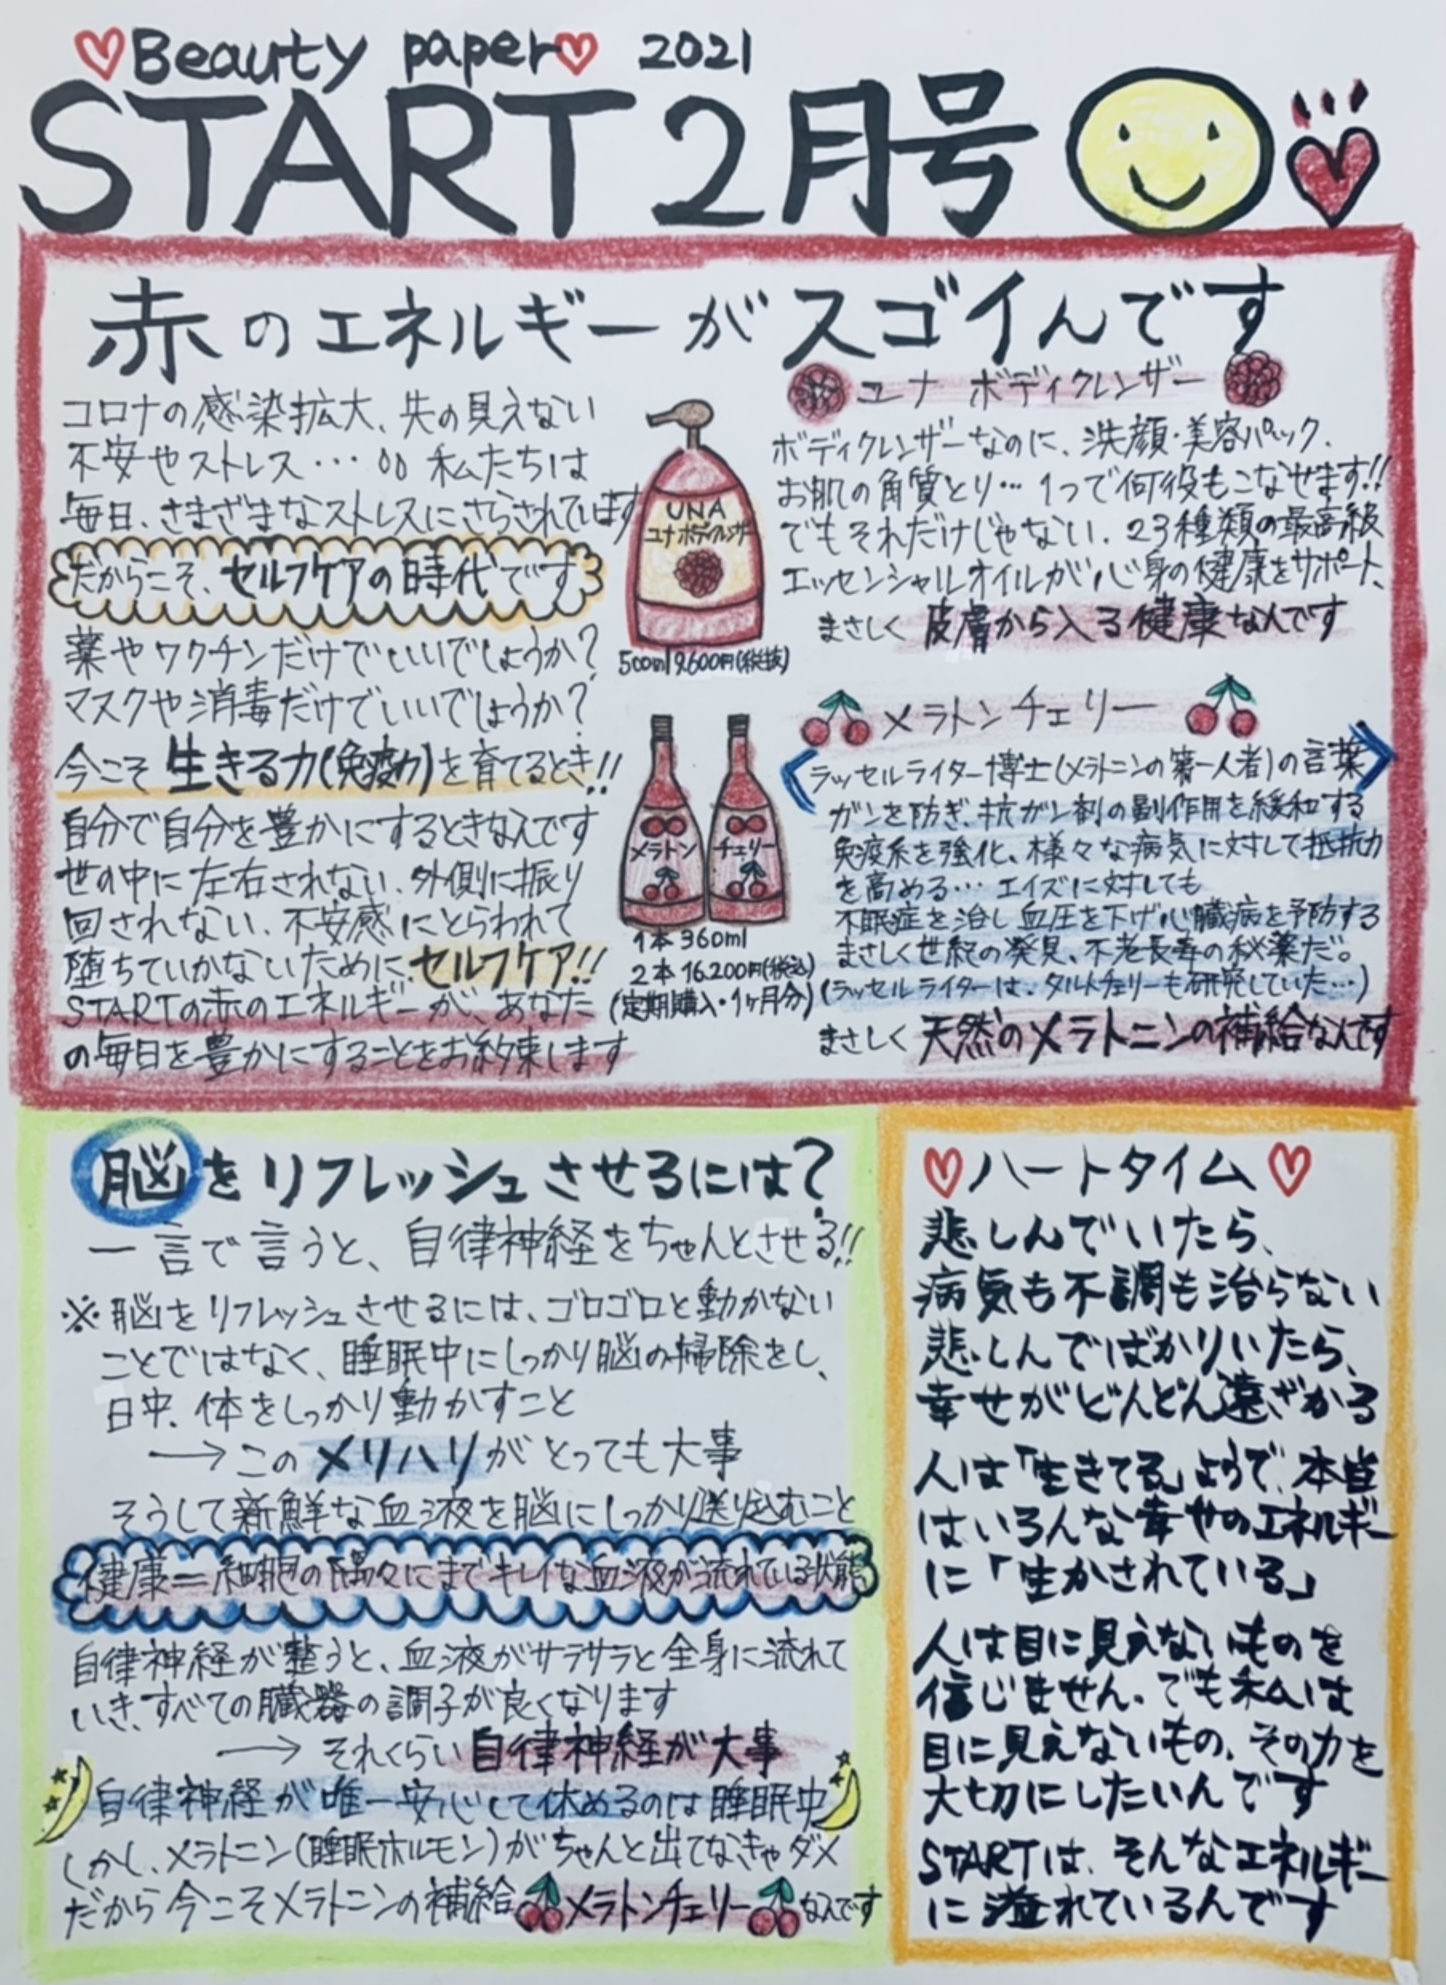 ♡Beauty paper♡ 2021
START 2月号
赤のエネルギーがスゴイんです
コロナの感染拡大、先の見えない
不安やストレス… 私たちは
毎日、さまざまなストレスにさらされています
だからこそ、セルフケアの時代です
薬やワクチンだけでいいでしょうか?
マスクや消毒だけでいいでしょうか?
今こそ生きる力(免疫力)を育てるとき!!
自分で自分を豊かにするときなんです
世の中に左右されない、外側に振り
回されない、不安感にとらわれて
堕ちていかないために、セルフケア!!
STARTの赤のエネルギーが、あなた
の毎日を豊かにすることをお約束します
UNA
ユナボディクレンザー
500ml 9.600円(税抜)
メラトン
チェリー
1本 360ml
2本 16.200円(税込)
(定期購入・1ヶ月分)
ユナ ボディクレンザー
ボディクレンザーなのに、洗顔・美容パック、
お肌の角質とり…1つで何役もこなせます!!
でもそれだけじゃない、23種類の最高級
エッセンシャルオイルが心身の健康をサポート、
まさしく 皮膚から入る健康なんです
メラトンチェリー
ラッセルライター博士(メラトニンの第一人者)の言葉
ガンを防ぎ、抗ガン剤の副作用を緩和する
免疫系を強化、様々な病気に対して抵抗力
を高める… エイズに対しても
不眠症を治し血圧を下げ心臓病を予防する
まさしく世紀の発見、不老長寿の秘薬だ。
(ラッセルライターは、タルトチェリーも研究していた…)
まさしく 天然のメラトニンの補給なんです
脳をリフレッシュさせるには?
一言で言うと、自律神経をちゃんとさせる!!
※脳をリフレッシュさせるには、ゴロゴロと動かない
ことではなく、睡眠中にしっかり脳の掃除をし、
日中、体をしっかり動かすこと
→このメリハリがとっても大事
そうして新鮮な血液を脳にしっかり送り込むこと
健康＝細胞の隅々にまでキレイな血液が流れている状態
自律神経が整うと、血液がサラサラと全身に流れて
いき、すべての臓器の調子が良くなります
→ それくらい自律神経が大事
自律神経が唯一安心して休めるのは睡眠中
しかし、メラトニン(睡眠ホルモン)がちゃんと出てなきゃダメ
だから今こそメラトニンの補給 メラトンチェリー なんです
♡ハートタイム♡
悲しんでいたら、
病気も不調も治らない
悲しんでばかりいたら、
幸せがどんどん遠ざかる
人は「生きてる」ようで、本当
はいろんな幸せのエネルギー
に「生かされている」
人は目に見えないものを
信じません。でも私は
目に見えないもの、その力を
大切にしたいんです
STARTは、そんなエネルギー
に溢れているんです